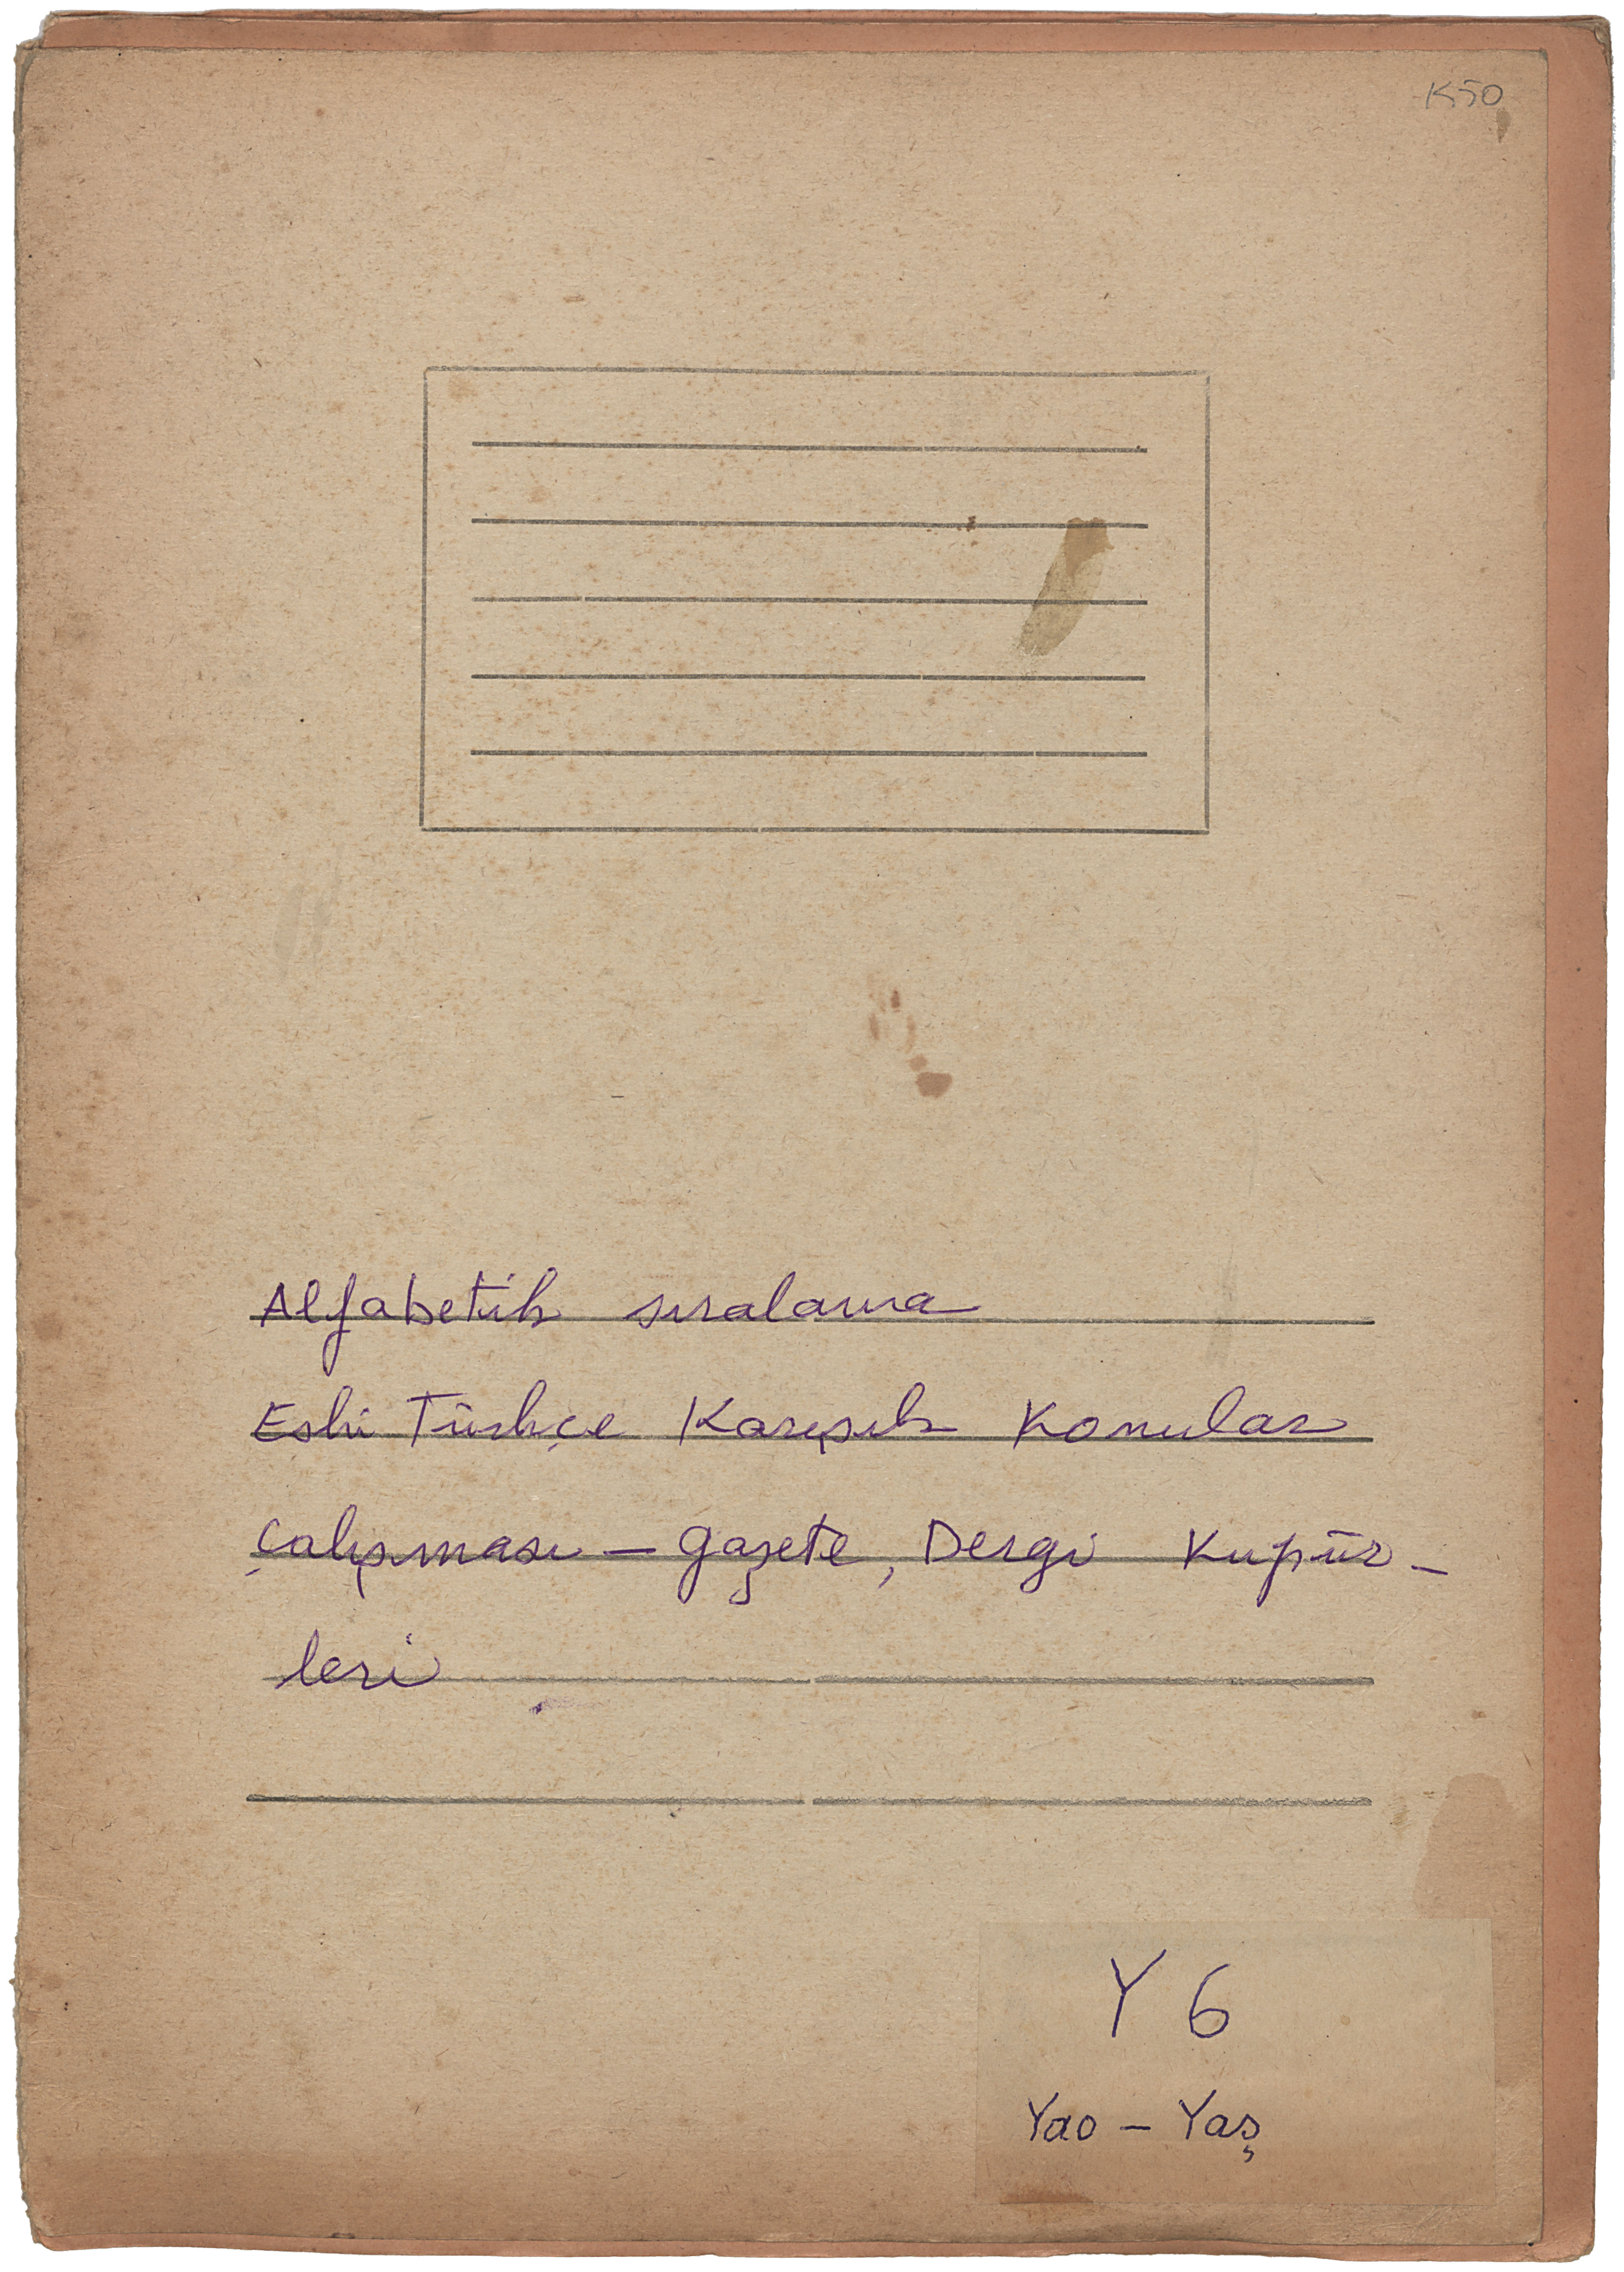 K50
Alfabetik sıralama
Eski Türkçe Karışık Konular
çalışması – gazete, Dergi Kupür-
leri
Y 6
Yao – Yaş